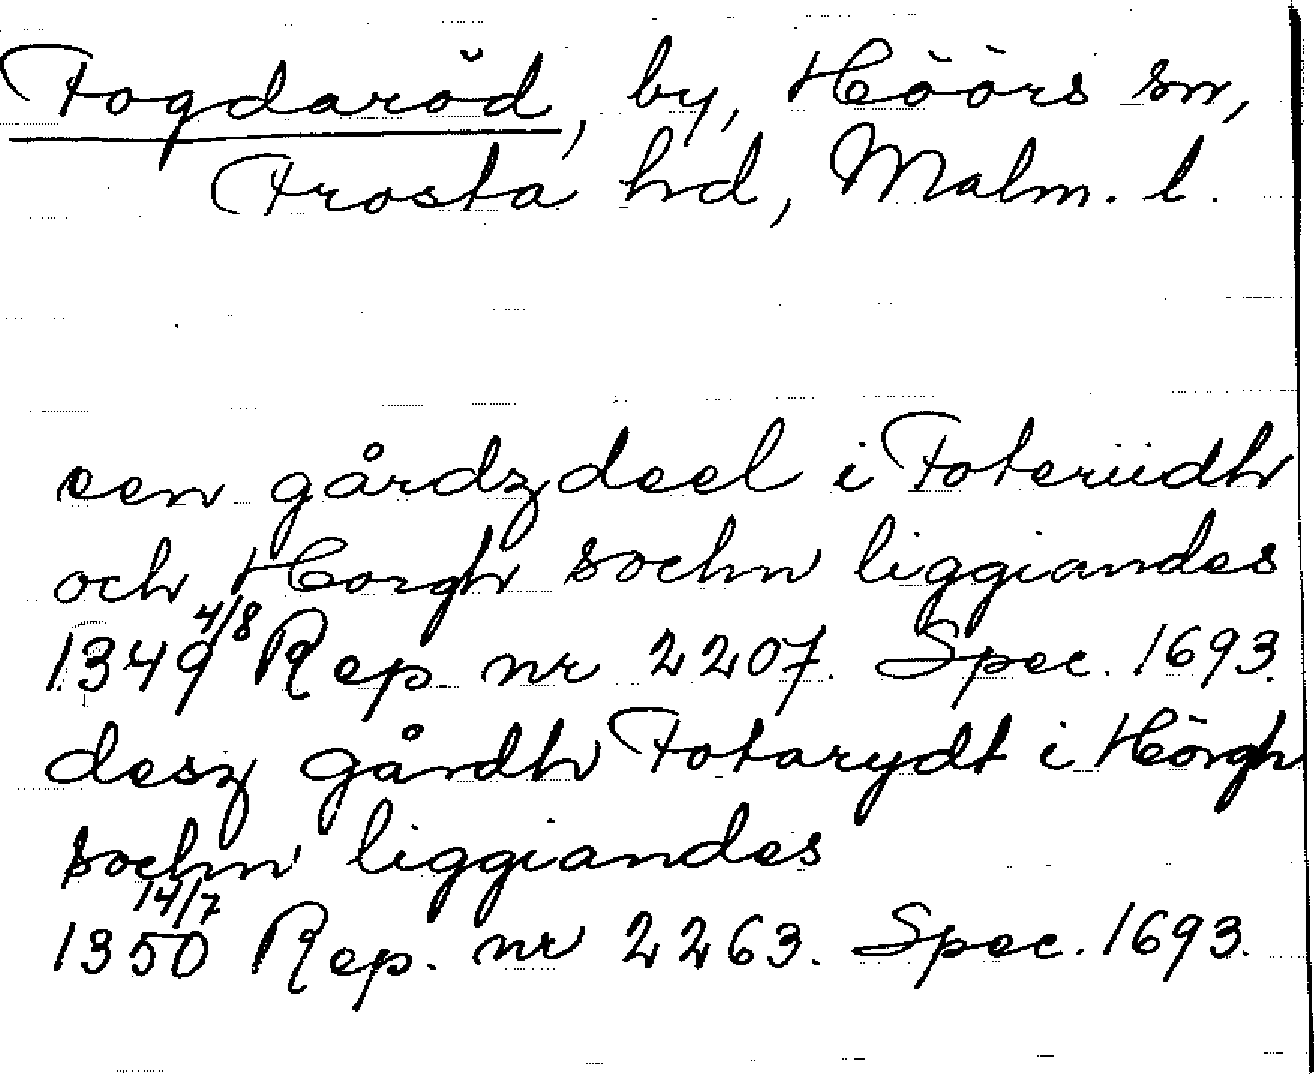 Fogdaröd, by, Höörs sn,
Frosta hd, Malm. l.
een gårdzdeel i Foterüdh
och Horgh sochn liggiandes
1349 4/8 Rep nr 2207. Spec. 1693.
desz gårdh Fotarydt i Hörgh
sochn liggiandes
1350 14/7 Rep. nr 2263. Spec. 1693.